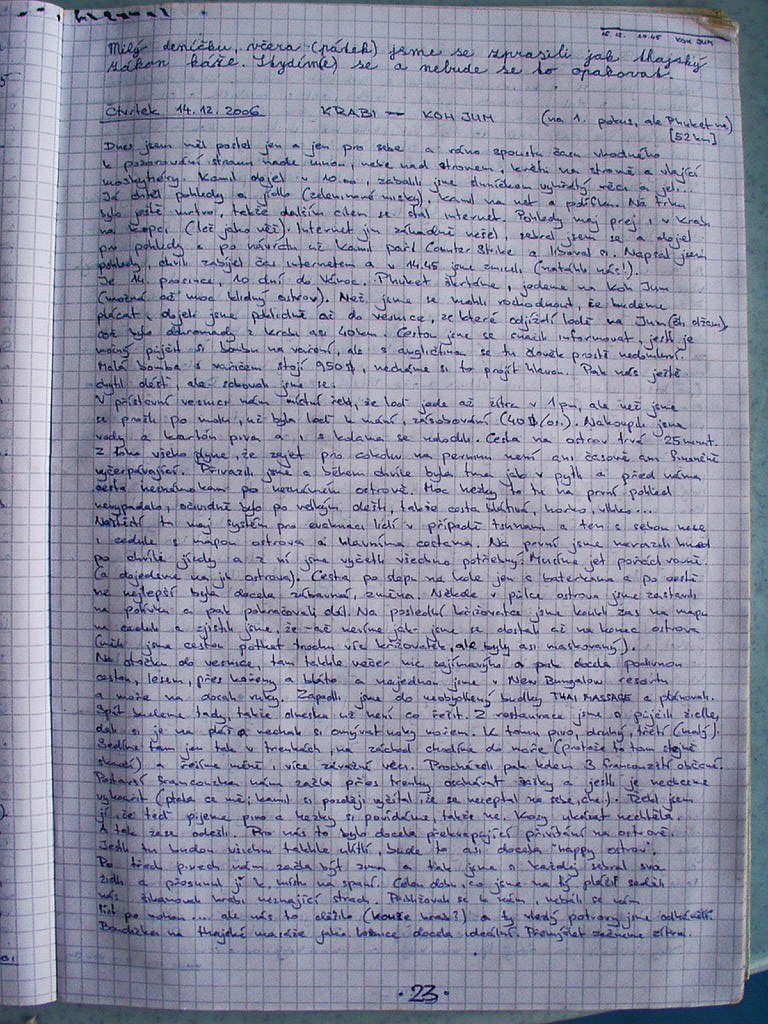 16.12. 14.45 KOH JUM
Milý deníčku, včera (pátek) jsme se zprasili jak thajský
zákon káže. Stydím(e) se a nebude se to opakovat.
Čtvrtek 14.12.2006 KRABI — KOH JUM (na 1. pokus, ale Phuket ne)
[52 km]
Dnes jsem měl postel jen a jen pro sebe a ráno spoustu času vhodného
k pozorování stromu nade mnou, nebe nad stromem, květu na stromě a vlající
moskytiéry. Kamil dojel v 10.00, zabalili jsme sluníčkem vyhřátý věci a jeli...
Já chtěl pohledy a jídlo (zeleninové misky), Kamil na net a
bylo ještě mrtvo, takže dalším cílem se stal internet. Pohledy maj prej i v Krabi
na kopci (leč jako věž). Internet jim záhadně nešel, sebral jsem se a dojel
pro pohledy a po návratu už Kamil pařil Counter Strike a liboval si. Napsal jsem
pohledy, chvíli zabíjel čas internetem a v 14.45 jsme zmizeli (natáhli nás!).
Je 14. prosince, 10 dní do Vánoc. Phuket škrtáme, jedeme na Koh Jum
(možná až moc klidný ostrov). Než jsme se mohli rozhodnout, že budeme
plácat, dojeli jsme poklidně až do vesnice, ze které odjíždí lodě na Jum (čti džam),
což bylo dohromady z Krabi asi 40 km. Cestou jsme se snažili informovat, jestli je
možný půjčit si bombu na vaření, ale s angličtinou se tu člověk prostě nedomluví.
Malá bomba s vařičem stojí 950฿, necháme si to projít hlavou. Pak nás ještě
chytil déšť, ale schovali jsme se.
V přístavní vesnici nám místní řekli, že loď jede až zítra v 1 pm, ale než jsme
se prošli po molu, už byla loď k mání, zásobování (40฿/os.). Nakoupili jsme
vody a kartón piva a i s kolama se nalodili. Cesta na ostrov trvá 25 minut.
Z toho všeho plyne, že zajet pro cokoliv na pevninu není ani časově ani finančně
vyčerpávající. Přirazili jsme a během chvíle byla tma jako v pytli a před náma
cesta neznámo kam po neznámém ostrově. Moc hezky to tu na první pohled
nevypadalo, očividně bylo po velkým dešti, takže cesta blátivá, horko, vlhko...
Naštěstí tu maj systém pro evakuaci lidí v případě tsunami a ten s sebou nese
i cedule s mapou ostrova a hlavníma cestama. Na první jsme narazili hned
po chvíli jízdy a z ní jsme vyčetli všechno potřebný: Musíme jet pořád rovně.
(a dojedeme na jih ostrova). Cesta po slepu na kole jen s baterkama a po cestě
ne nejlepší byla docela zábavná, změna. Někde v půlce ostrova jsme zastavili
na polívku a pak pokračovali dál. Na poslední křižovatce jsme koukli zas na mapu
na ceduli a zjistili jsme, že – ač nevíme jak – jsme se dostali až na konec ostrova
(měli jsme cestou potkat trochu víc křižovatek, ale byly asi maskovaný).
Na otočku do vesnice, tam takhle večer nic zajímavýho a pak docela podivnou
cestou, lesem, přes kořeny a bláto a najednou jsme v New Bungalow resortu
a moře na dosah ruky. Zapadli jsme do neobydlený budky THAI MASSAGE a plánovali.
Spát budeme tady, takže dneska už není co řešit. Z restaurace jsme si půjčili židle,
dali si je na pláž a nechali si omývat nohy mořem. K tomu pivo, druhý, třetí (malý).
Sedíme tam jen tak v trenkách, na záchod chodíme do moře (protože to tam stejně
skončí) a řešíme méně i více závažné věci. Procházeli pak kolem 3 francouzští občané.
Postarší francouzka nám začla přes trenky ochávat a jestli je nechceme
vykouřit (ptala se mě; Kamil si později vyčítal, že se nezeptal na sebe, che.). Řekl jsem
jí, že teď pijeme pivo a hezky si povídáme, takže ne. Kozy ukázat nechtěla.
A tak zase odešli. Pro nás to bylo docela překvapující přivítání na ostrově.
Jestli tu budou všichni takhle vlítlí, bude to asi docela "happy ostrov".
Po třech pivech nám začla být zima a tak jsme si každý sebral svou
židli a přesunul ji k místu na spaní. Celou dobu, co jsme na tý pláži seděli
nás šikanovali krabi neznající strach. Přibližovali se k nám, nebáli se nám
lízt po nohou... ale nás to děsilo (kouše krab?) a ty vlezlý potvory jsme odháněli.
Boudička na thajské masáže jako ložnice docela ideální. Přemýšlet začneme zítra.
· 23 ·